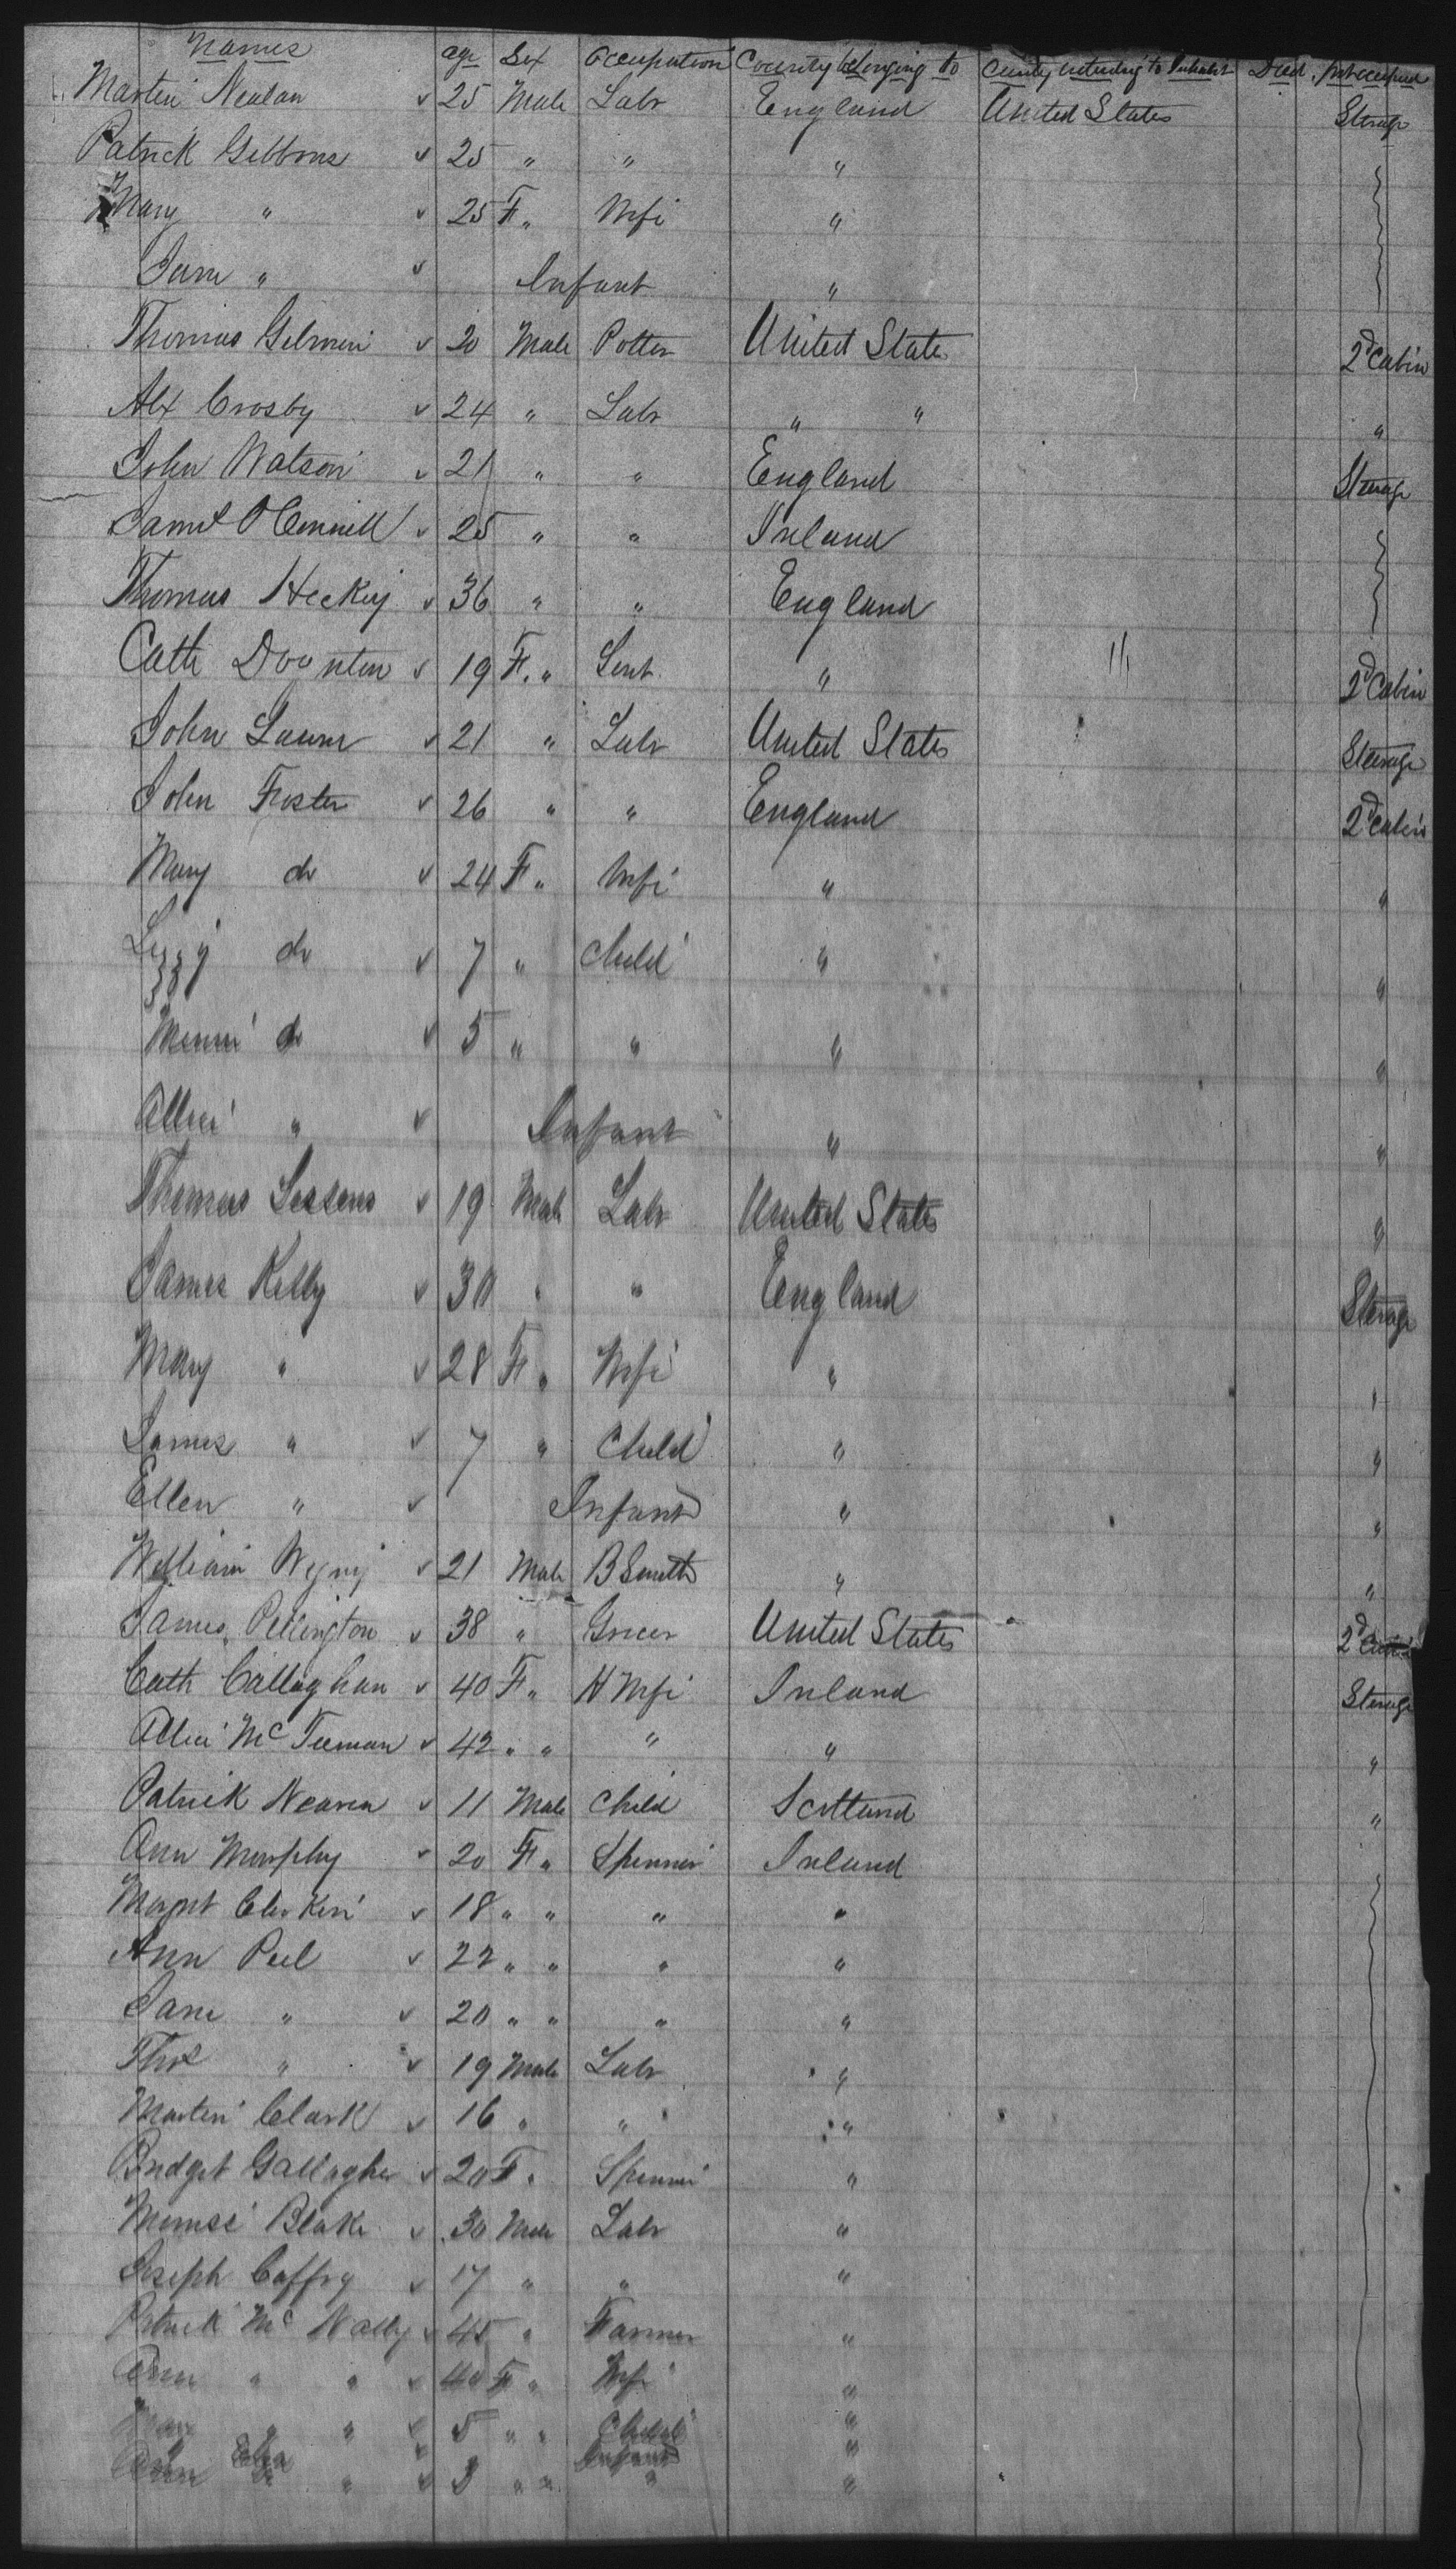 Names age Sex Occupation County belonging to County intending to Inhabit Died Part occupied
Martin Nealan 25 Male Labr England United States Sterage
Patrick Gibbons 25 " " "
Mary " 25 F " Wife "
Jane " Infant "
Thomas Gilmen 20 Male Potter United States 2d Cabin
Alx Crosby 24 " Labr " " "
John Watson 21 " " England Sterage
Daniel O Connell 25 " " Ireland
Thomas Heckey 36 " " England
Cath 19 F. " Servt " 2d Cabin
John 21 " Labr United States Steerage
John Foster 26 " " England 2d Cabin
Mary do 24 F " Wife " "
Lizzy do 7 " Child " "
Minni do 5 " " " "
Allice " Infant " "
Thomas Sessons 19 Male Labr United States "
James Kelly 30 " " England Sterage
Mary " 28 F " Wife " "
James " 7 " Child " "
Ellen " Infant " "
William 21 Male B Smith " "
James Pellington 38 " Grocer United States 2d Cabin
Cath Callaghan 40 F " H Wife Ireland Sterage
Allice Mc Teernan 42 " " " " "
Patrick Nearen 11 Male Child Scotland "
Ann Murphy 20 F " Spinner Ireland
Magrt Clerkin 18 " " " "
Ann Peel 22 " " " "
Jane " 20 " " " "
Thos " 19 Male Labr "
Martin Clark 16 " " "
Bridget Gallagher 20 F " Spinner "
Blake 30 Male Labr "
Joseph Caffry 17 " " "
Patrick Mc Nally 45 " Farmer "
Ann " " 40 F " Wife "
" " 5 " " Child "
Infant "
Ann " " 3 " " " "